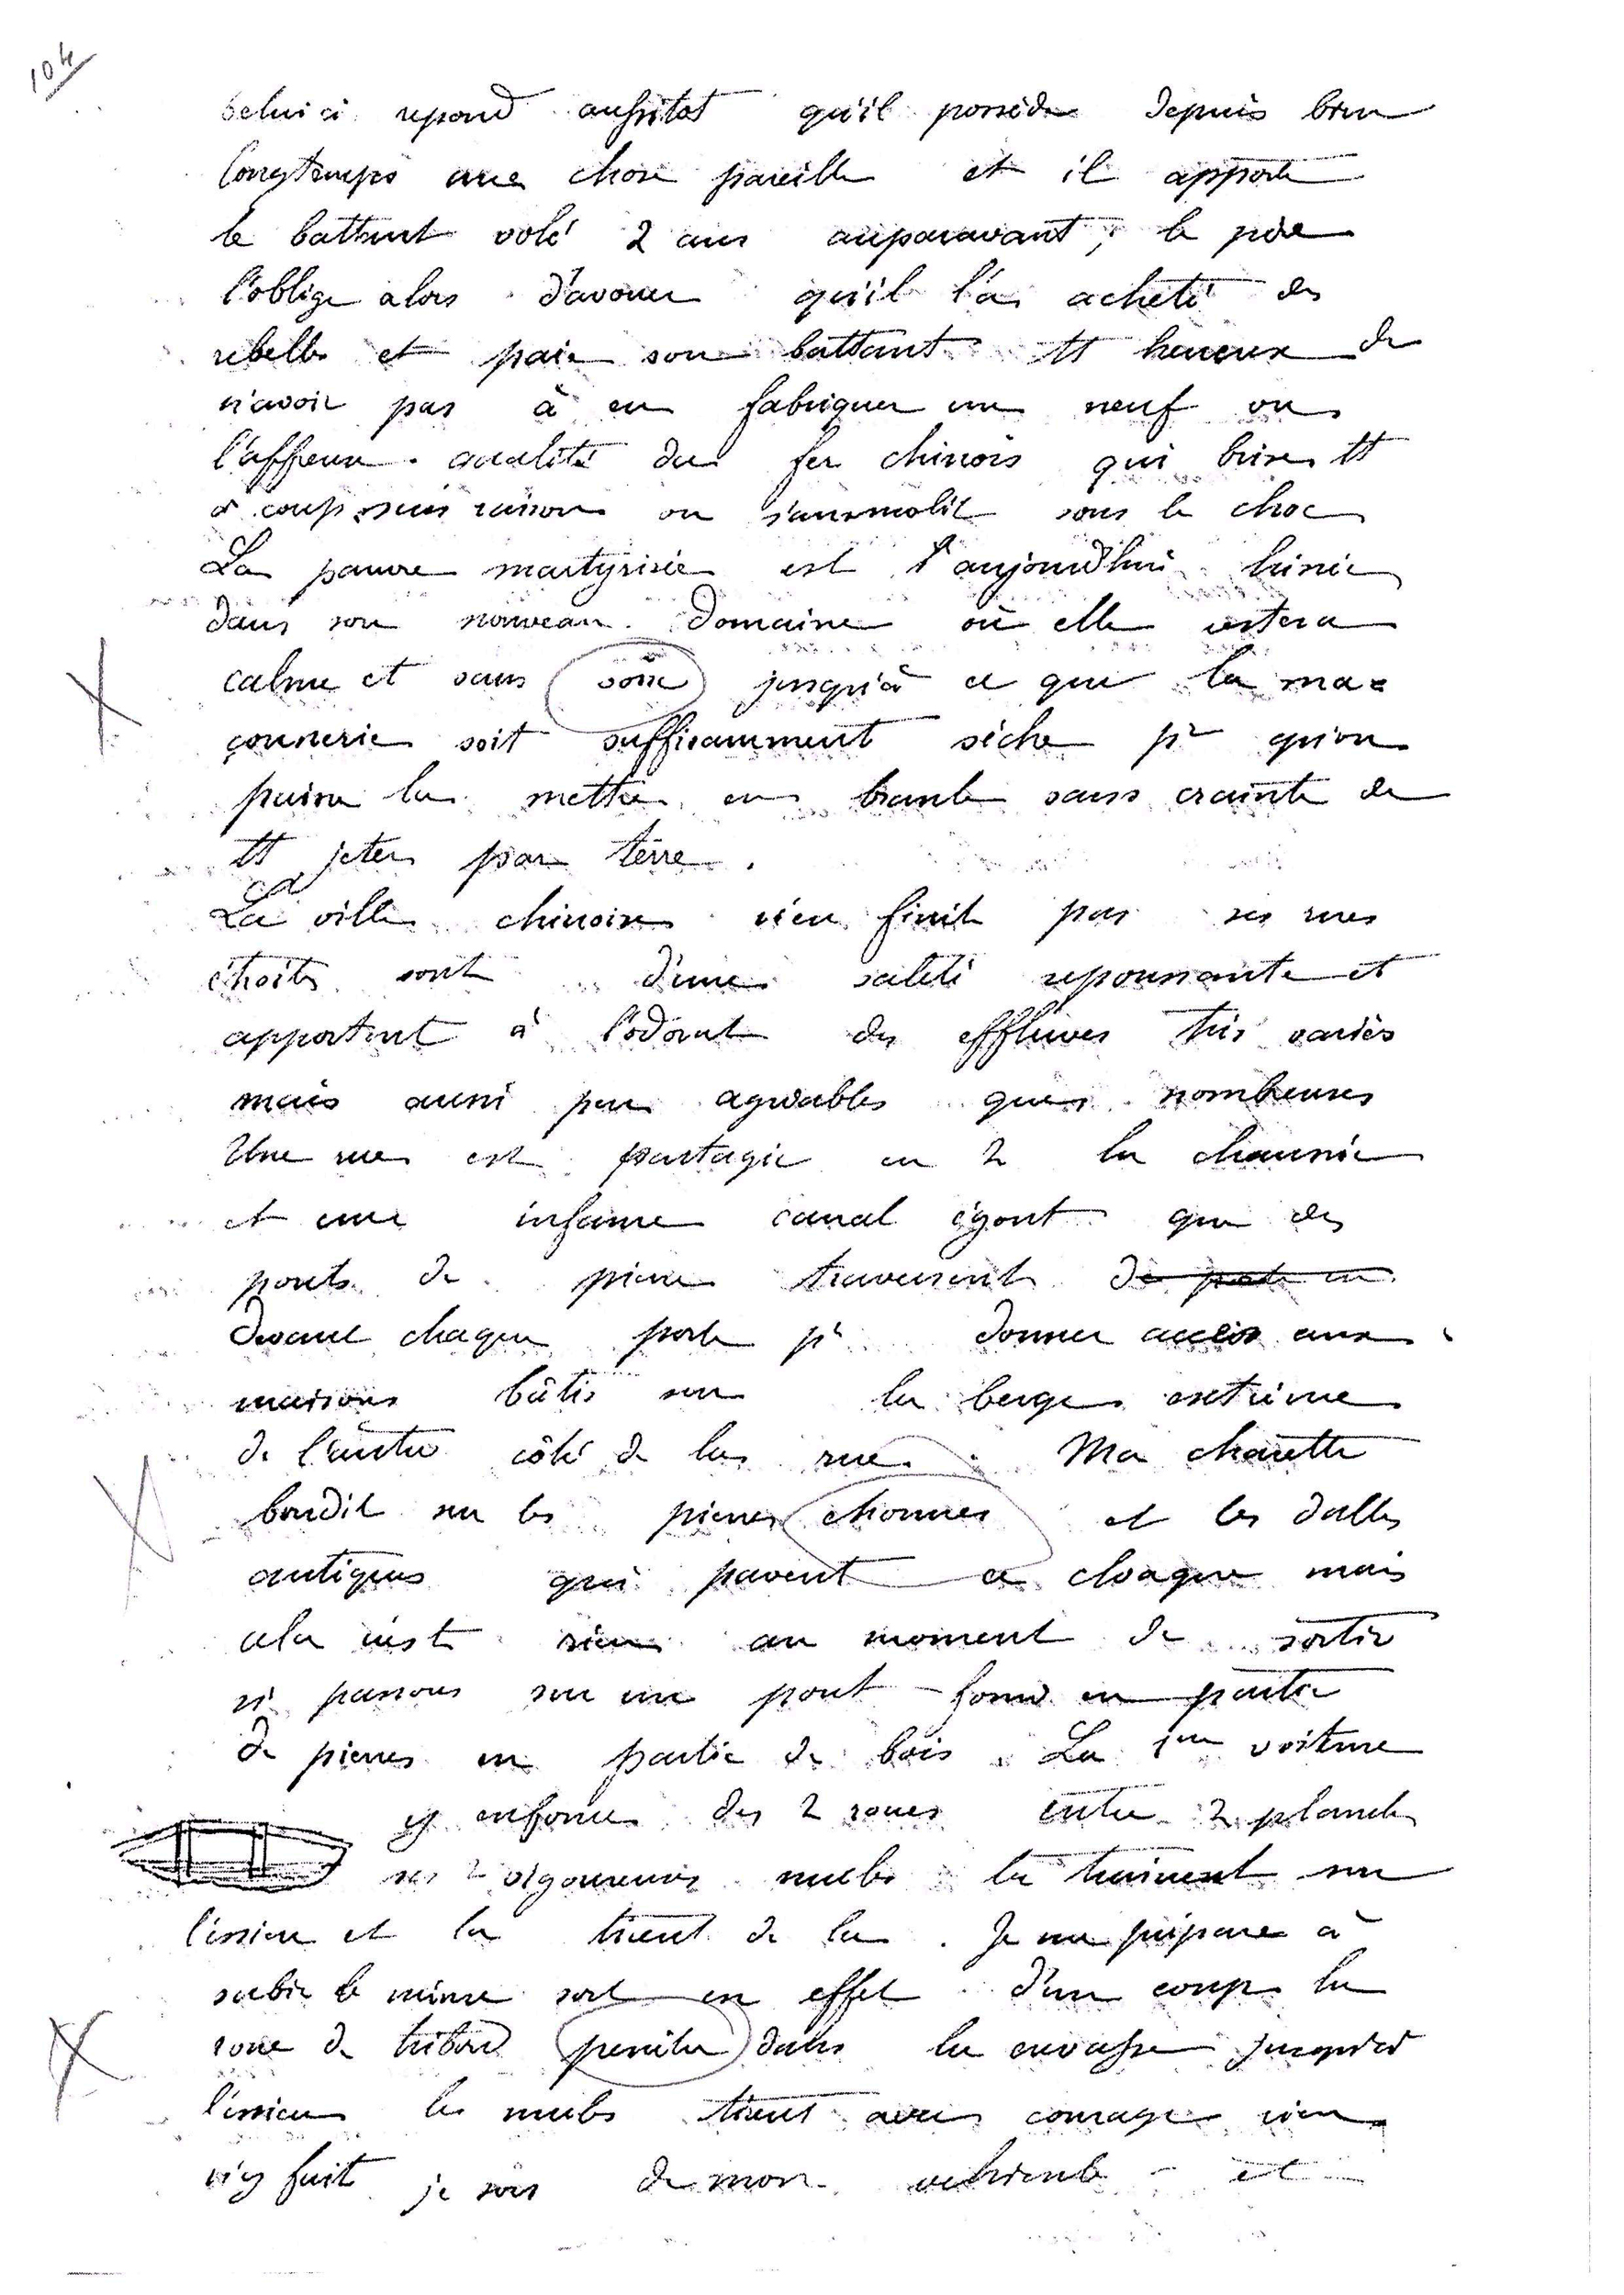 104
celui ci repond aussitot qu'il possède depuis bien
longtemps une chose pareille et il apporte
le battant volé 2 ans auparavant, le père
l'oblige alors d'avouer qu'il l'a acheté des
rebelles et paie son battant tt heureux de
n'avoir pas à en fabriquer un neuf vu
l'affreuse qualité du fer chinois qui brise tt
à coup sans raison ou s'ammolit sous le choc
La pauvre martyrisée est aujourd'hui hissée
dans son nouveau domaine où elle restera
calme et sans voix jusqu'à ce que la ma=
çonnerie soit suffisamment sèche pr qu'on
puisse la mettre en branle sans crainte de
tt jeter par terre.
La ville chinoise n'en finit pas ses rues
étroites sont d'une saleté repoussante et
apportent à l'odorat des effluves très variés
mais aussi peu agréables que nombreuses
Une rue est partagée en 2 la chaussée
et une infame canal égout que des
ponts de pierre traversent de porte en
devant chaque porte pr donner accès aux
maisons bâties sur la berge extrème
de l'autre côté de la rue. Ma charette
bondit sur les pierres énormes et les dalles
antiques qui pavent ce cloaque mais
cela n'est rien au moment de sortir
ns passons sur un pont formé en partie
de pierres en partie de bois. La 1ère voiture
y enfonce des 2 roues entre 2 planches
ses 2 vigoureuses mules la trainent sur
l'essieu et la tirent de la. Je me prépare à
subir le même sort en effet d'un coup la
roue de tribord penètre dans la crevasse jusqu'à
l'essieu les mules tirent avec courage rien
n'y fait je sors de mon vehicule et